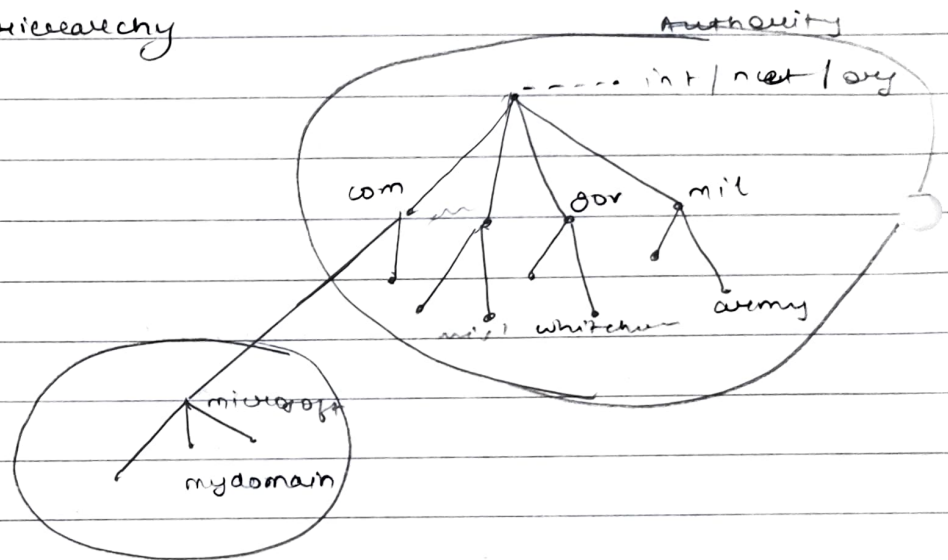 Hierarchy
Authority
int / net / org
com
gov
mil
army
microsoft
mydomain